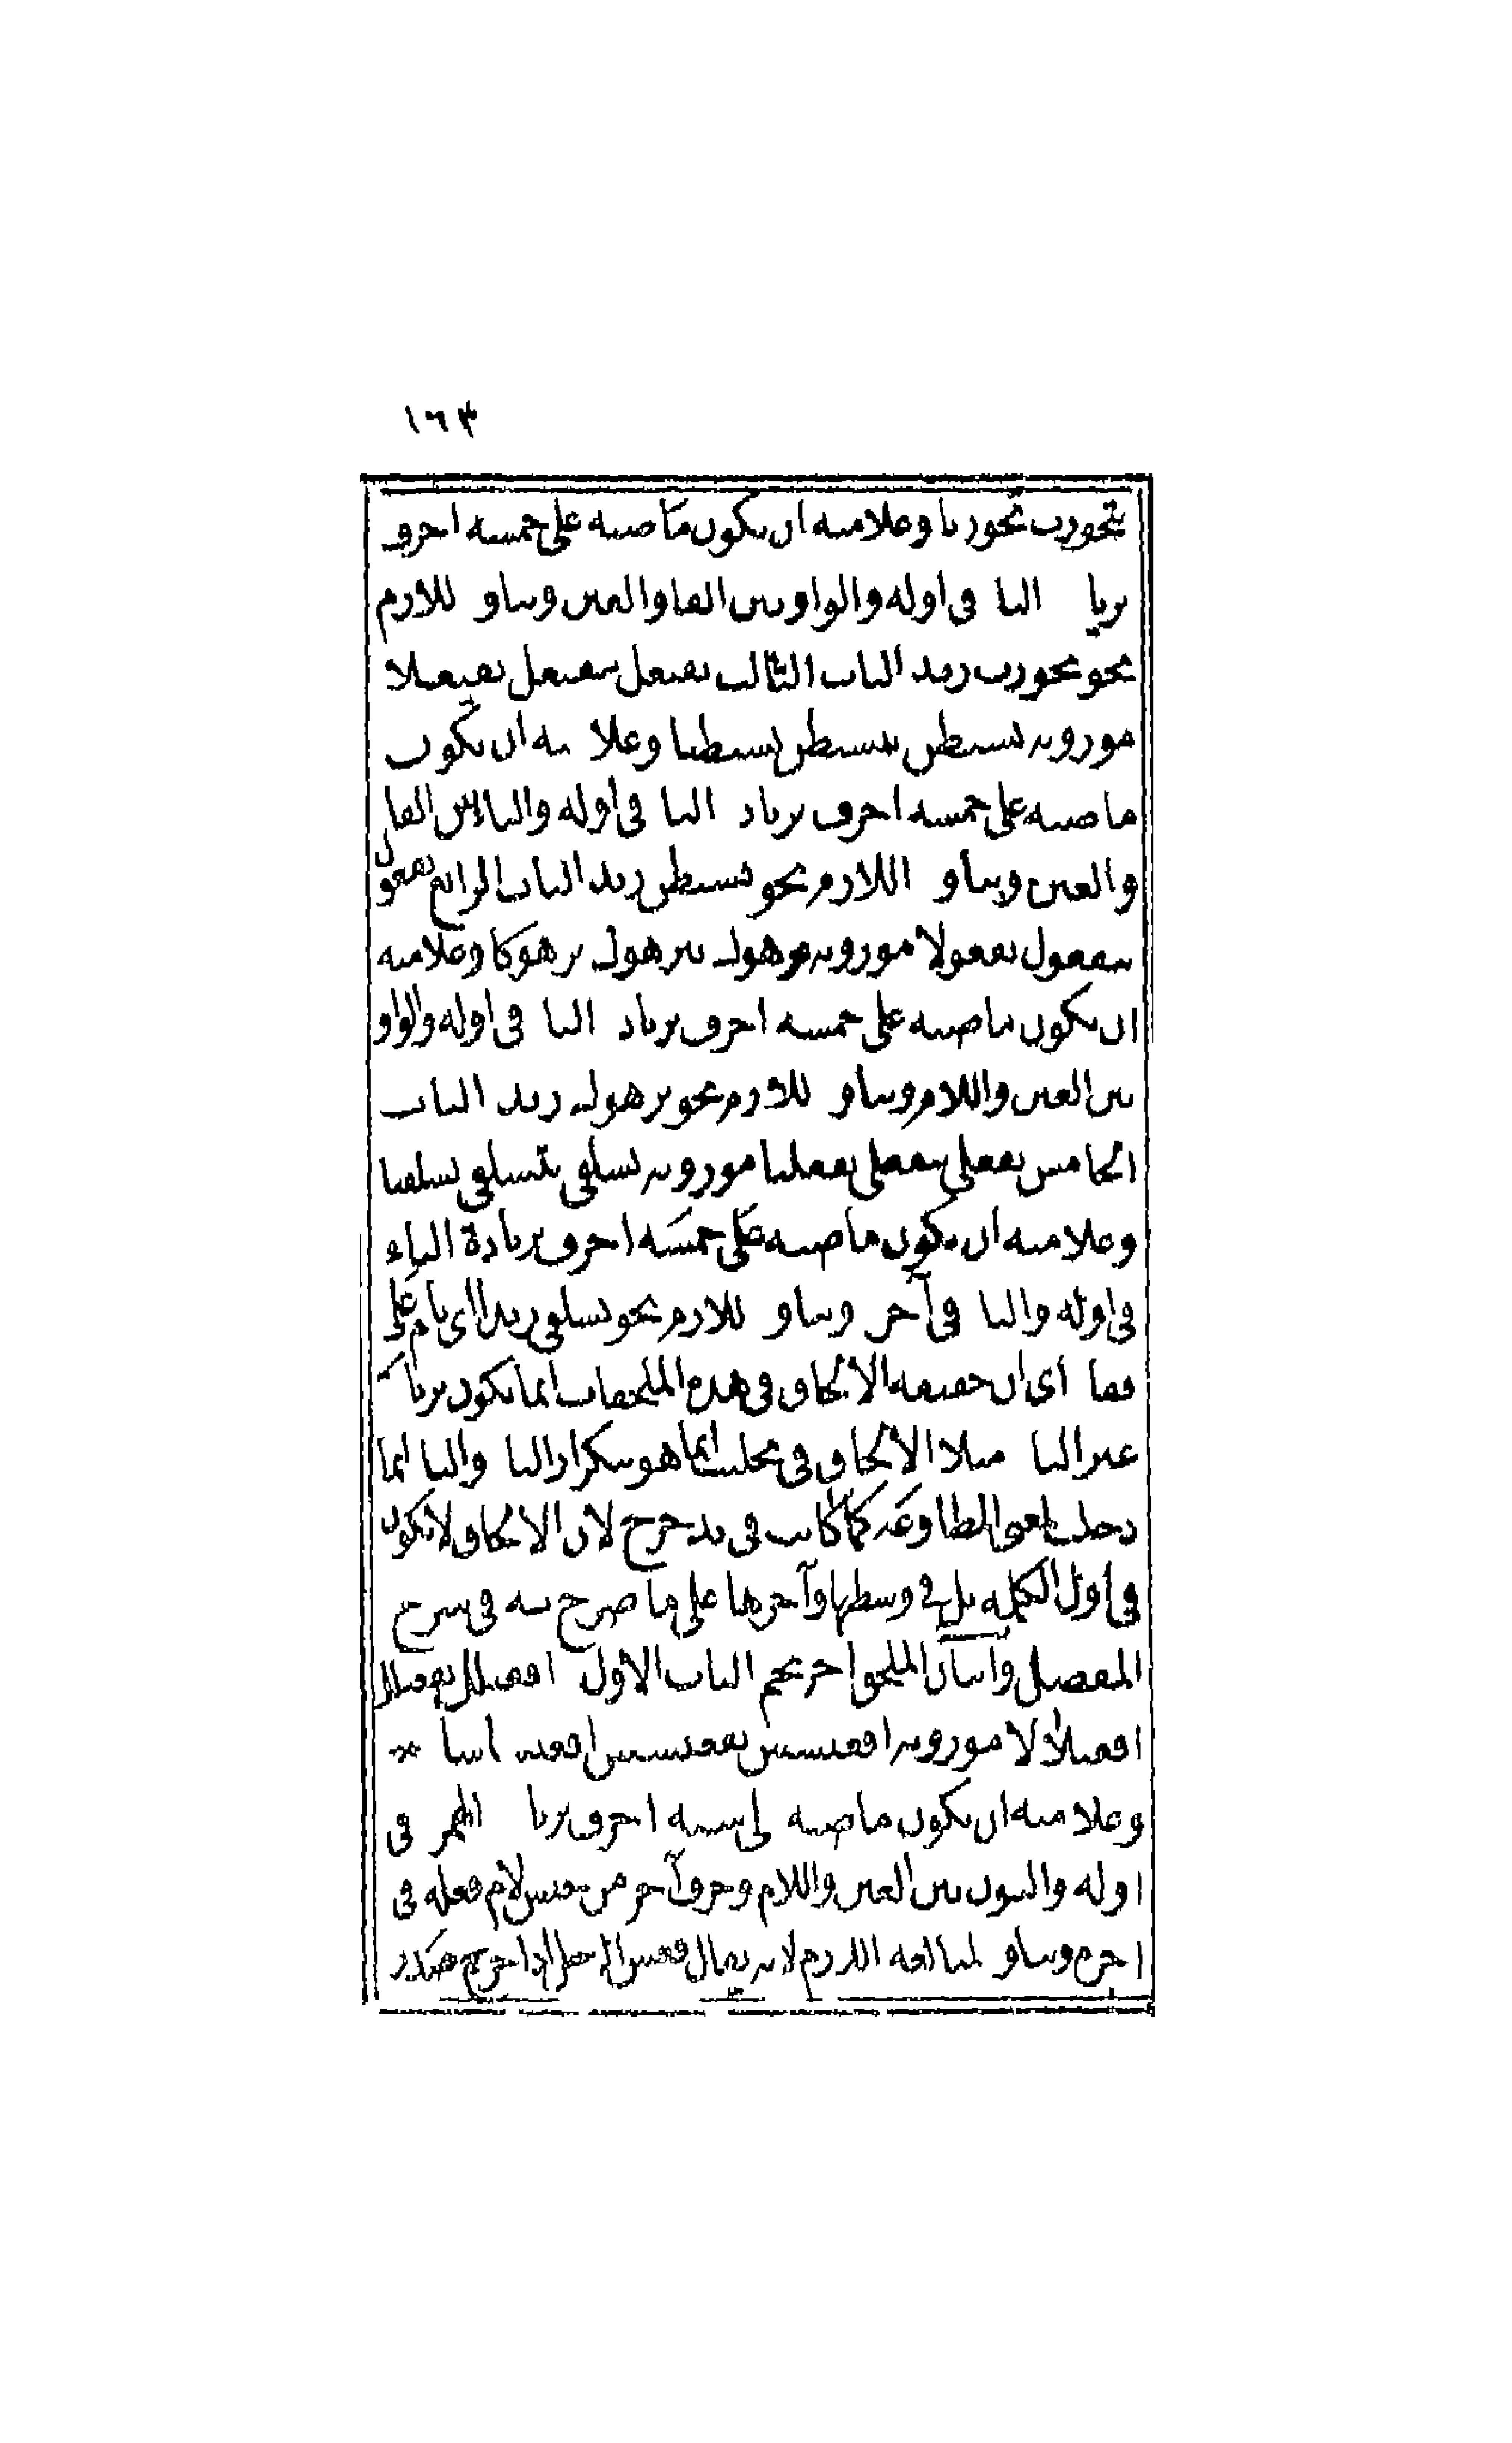 ١٦٣
يتجورب تجوربا وعلامته ان يكون ماضيه على خمسة احرف
بزيا التا فى اوله والواو بين الفا والعين وبناو للازم
نحو تجورب زيد الباب الثالث تفيعل يتفيعل تفيعلا
موزونه تشيطن يتشيطن تشيطنا وعلا ته ان يكون
ماضيه على خمسة احرف بزياد التا فى اوله واليا بين الفا
والعين وبناو اللازم نحو تشيطن زيد الباب الرابع تفعول
يتفعول تفعولا موزونه ترهوك يترهوك ترهوكا وعلامته
ان يكون ماضيه على خمسة احرف بزياد التا فى اوله والواو
بين العين واللام وبناو للازم نحو ترهوك زيد الباب
الخامس تفعلى يتفعلى تفعليا موزونه تسلقى يتسلقى تسلقيا
وعلامته ان يكون ماضيه على خمسة احرف بزيادة التاء
فى اوله واليا فى آخر وبناو للازم نحو تسلقى زيد اى نام على
قفا أى ان حقيقة الالحاق فى هذه الملحقات انما تكون بزيا
غير التا مثلا الالحاق فى تجلبب انما هو بتكرار البا والتا انما
دخلت لمعنى المطاوعة كما كانت فى تدحرج لان الالحاق لا يكون
فى اول الكلمة بل فى وسطها وآخرها على ما صرح به فى شرح
المفصل واثنان لملحق احرنجم الباب الاول افعنلل يفعنلل
افعنلالا موزونه اقعنسس يقعنسس اقعنساسا *
وعلامته ان يكون ماضيه لى ستة احرف بزيا الهمز فى
اوله والنون بين العين واللام وحرف آخر من جنس لام فعله فى
اخره وبناو لمبالغة اللازم لانه يقال قعس الرجل اذا خرج صدر